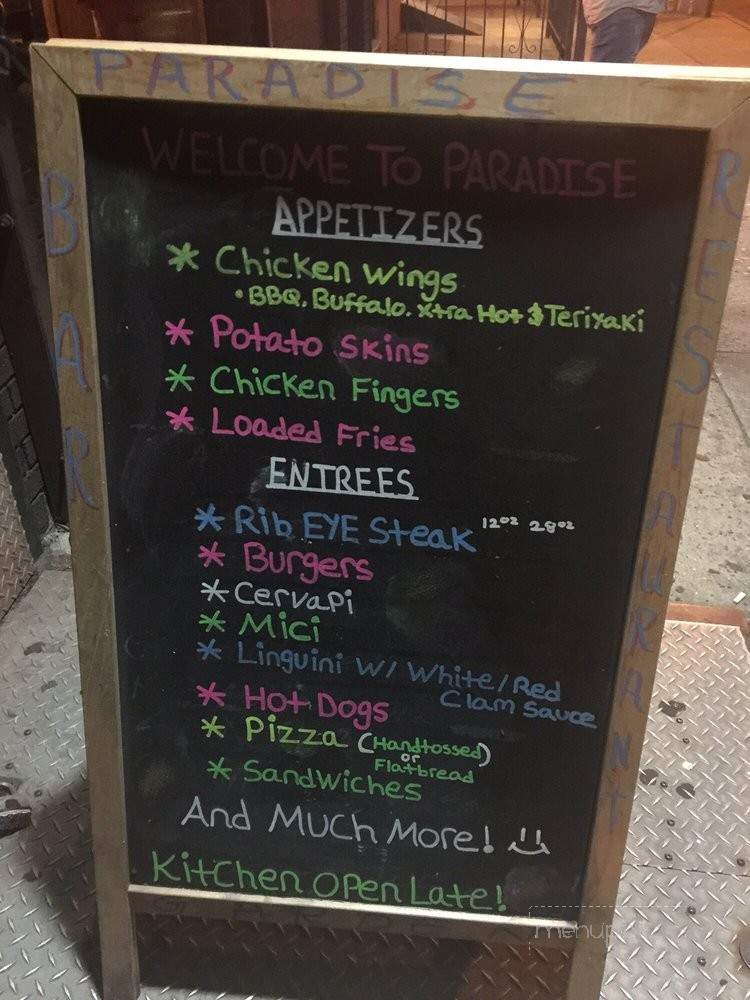 PARADISE
BAR
RESTAURANT
WELCOME TO PARADISE
APPETIZERS
* Chicken Wings
• BBQ. Buffalo. Xtra Hot $ Teriyaki
* Potato Skins
* Chicken Fingers
* Loaded Fries
ENTREES
* Rib EYE Steak 12oz 28oz
* Burgers
* Cervapi
* Mici
* Linguini W/ White/Red
Clam Sauce
* Hot Dogs
* Pizza (Handtossed)
or
Flatbread
* Sandwiches
And Much More!
Kitchen Open Late!